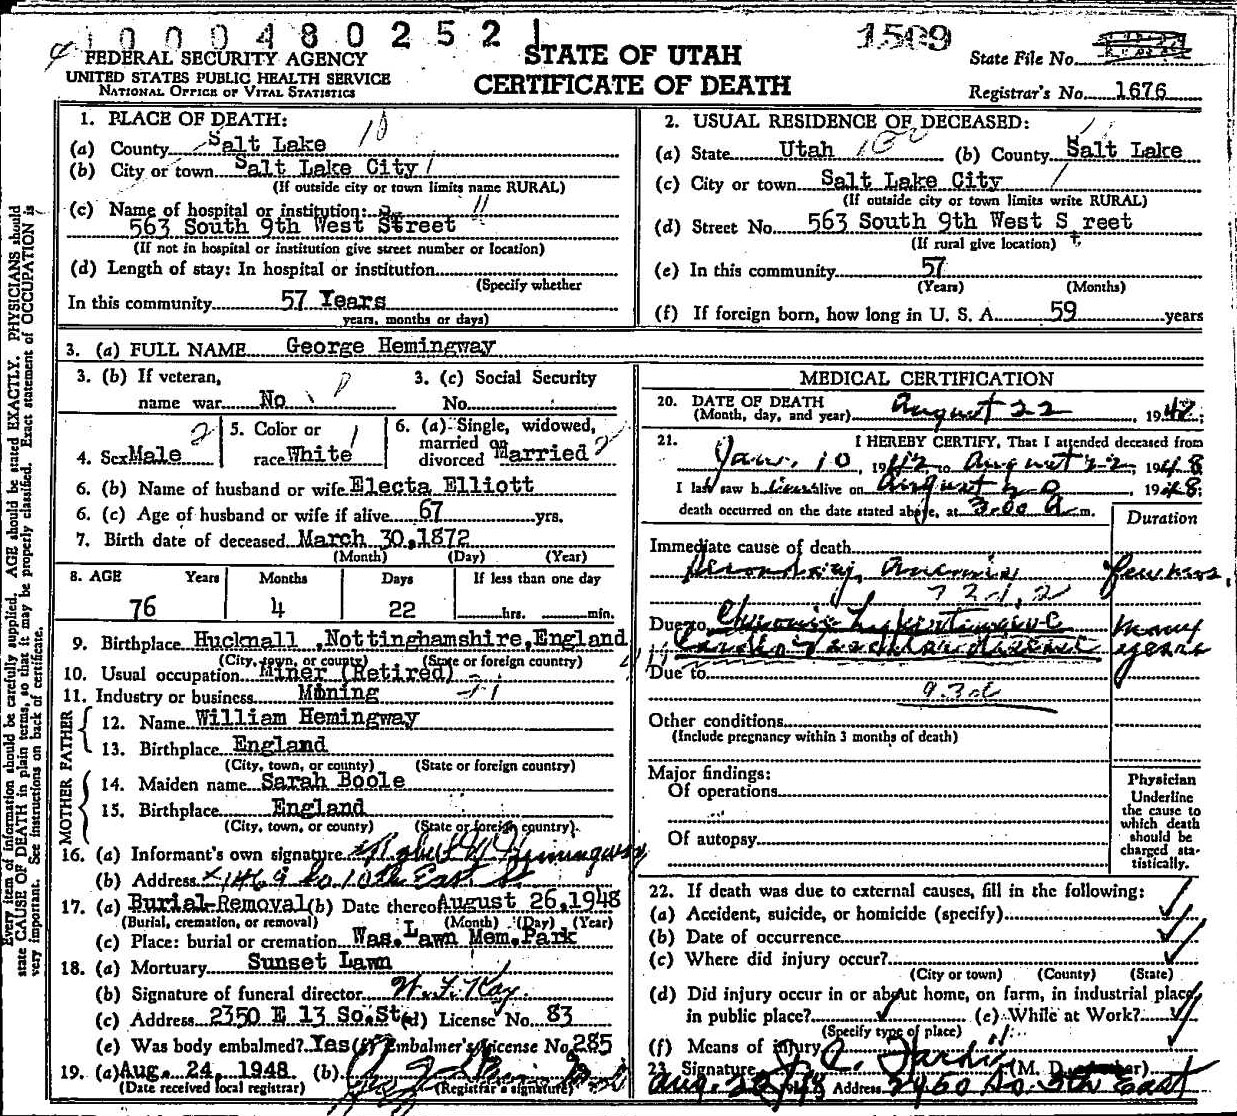 1000480252 1509
FEDERAL SECURITY AGENCY
UNITED STATES PUBLIC HEALTH SERVICE
NATIONAL OFFICE OF VITAL STATISTICS
STATE OF UTAH
CERTIFICATE OF DEATH
State File No.
Registrar's No. 1676
1. PLACE OF DEATH:
(a) County Salt Lake
(b) City or town Salt Lake City
(If outside city or town limits name RURAL)
(c) Name of hospital or institution:
563 South 9th West Street
(If not in hospital or institution give street number or location)
(d) Length of stay: In hospital or institution
(Specify whether
In this community 57 Years
years, months or days)
2. USUAL RESIDENCE OF DECEASED:
(a) State Utah (b) County Salt Lake
(c) City or town Salt Lake City
(If outside city or town limits write RURAL)
(d) Street No. 563 South 9th West Street
(If rural give location)
(e) In this community 57
(Years) (Months)
(f) If foreign born, how long in U. S. A. 59 years
3. (a) FULL NAME George Hemingway
3. (b) If veteran, name war No
3. (c) Social Security No.
4. Sex Male
5. Color or race White
6. (a) Single, widowed, married or divorced Married
6. (b) Name of husband or wife Electa Elliott
6. (c) Age of husband or wife if alive 67 yrs.
7. Birth date of deceased March 30, 1872
(Month) (Day) (Year)
8. AGE Years Months Days If less than one day
76 4 22 hrs. min.
9. Birthplace Hucknall ,Nottinghamshire,England
(City, town, or county) (State or foreign country)
10. Usual occupation Miner (Retired)
11. Industry or business Mining
FATHER
12. Name William Hemingway
13. Birthplace England
(City, town, or county) (State or foreign country)
MOTHER
14. Maiden name Sarah Boole
15. Birthplace England
(City, town, or county) (State or foreign country).
16. (a) Informant's own signature Robert W Hemingway
(b) Address 1469 So. 10th East St
17. (a) Burial-Removal (b) Date thereof August 26, 1948
(Burial, cremation, or removal) (Month) (Day) (Year)
(c) Place: burial or cremation Was. Lawn Mem. Park
18. (a) Mortuary Sunset Lawn
(b) Signature of funeral director
(c) Address 2350 E 13 So. St. (d) License No. 83
(e) Was body embalmed? Yes (f) Embalmer's License No. 285
19. (a) Aug. 24, 1948 (b)
(Date received local registrar) (Registrar's signature)
MEDICAL CERTIFICATION
20. DATE OF DEATH
(Month, day, and year) August 22, 1948;
21. I HEREBY CERTIFY, That I attended deceased from
Jan. 10 1942 to August 22, 1948
I last saw him alive on August 20, 1948;
death occurred on the date stated above, at 3:00 a m.
Duration
Immediate cause of death
Secondary Anemia few hrs.
Due to Chronic Hypertensive many
Cardio Vascular disease years
Due to
93d
Other conditions
(Include pregnancy within 3 months of death)
Major findings:
Of operations
Of autopsy
Physician
Underline
the cause to
which death
should be
charged sta-
tistically.
22. If death was due to external causes, fill in the following:
(a) Accident, suicide, or homicide (specify)
(b) Date of occurrence
(c) Where did injury occur?
(City or town) (County) (State)
(d) Did injury occur in or about home, on farm, in industrial place,
in public place? (e) While at Work?
(Specify type of place)
(f) Means of injury
23. Signature (M. D.
Address 2460 So. 5th East
Every item of information should be carefully supplied. AGE should be stated EXACTLY. PHYSICIANS should
state CAUSE OF DEATH in plain terms, so that it may be properly classified. Exact statement of OCCUPATION is
very important. See instructions on back of certificate.